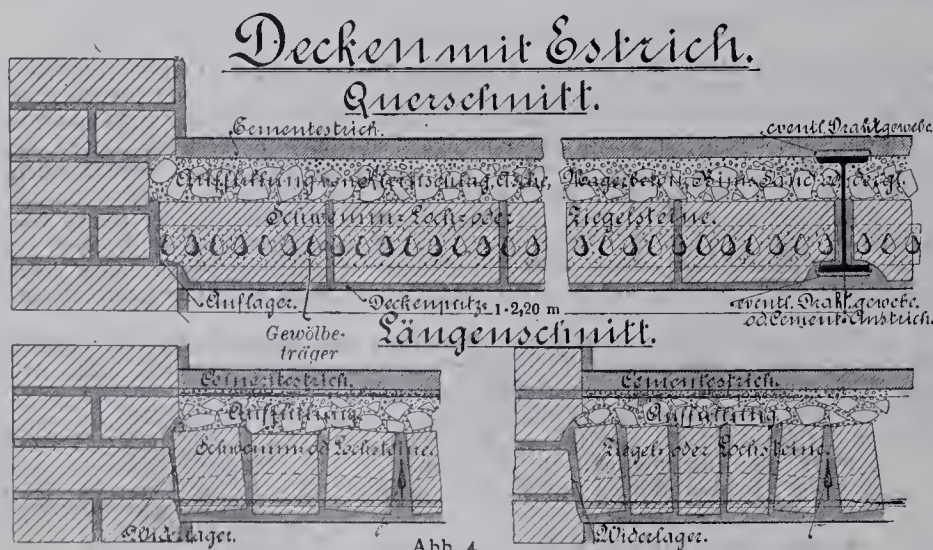 Decken mit Estrich.
Querschnitt.
Cementestrich.
eventl. Drahtgewebe
Auffüllung von Kleinschlag, Asche, Magerbeton, Bims-Sand od. dergl.
Schwemm- Loch- oder Ziegelsteine.
Auflager.
Deckenputz.
1-2,20 m
eventl. Drahtgewebe.
od. Cement-Anstrich.
Gewölbe-
träger
Längenschnitt.
Cementestrich.
Cementestrich.
Auffüllung
Auffüllung
Schwemm- od. Lochsteine.
Ziegel- oder Lochsteine.
Widerlager.
Widerlager.
Abb. 4